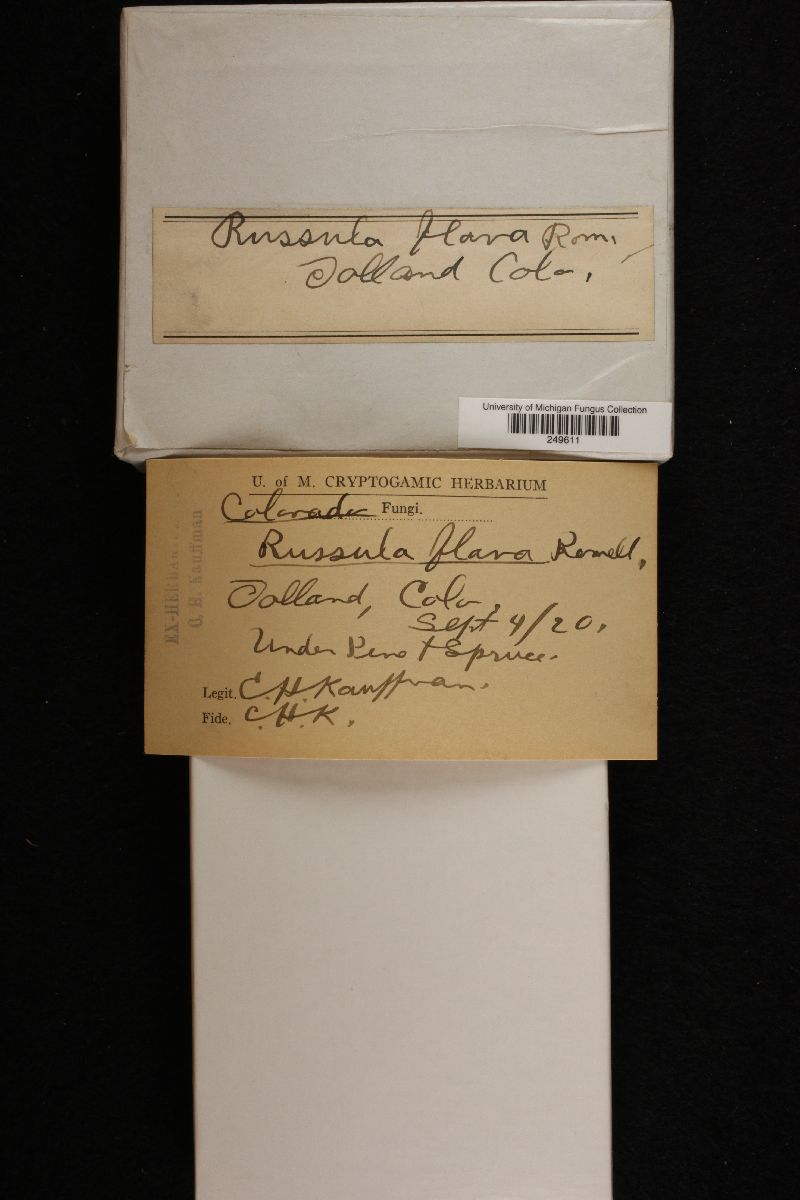 Russula flava Rom.
Tolland Colo.
University of Michigan Fungus Collection
249611
U. of M. CRYPTOGAMIC HERBARIUM
Colorado Fungi.
Russula flava Romell.
Tolland, Colo.
Sept 4/20.
Under Pine + Spruce.
Legit. C.H. Kauffman.
Fide. C.H.K.
C. H. Kauffman